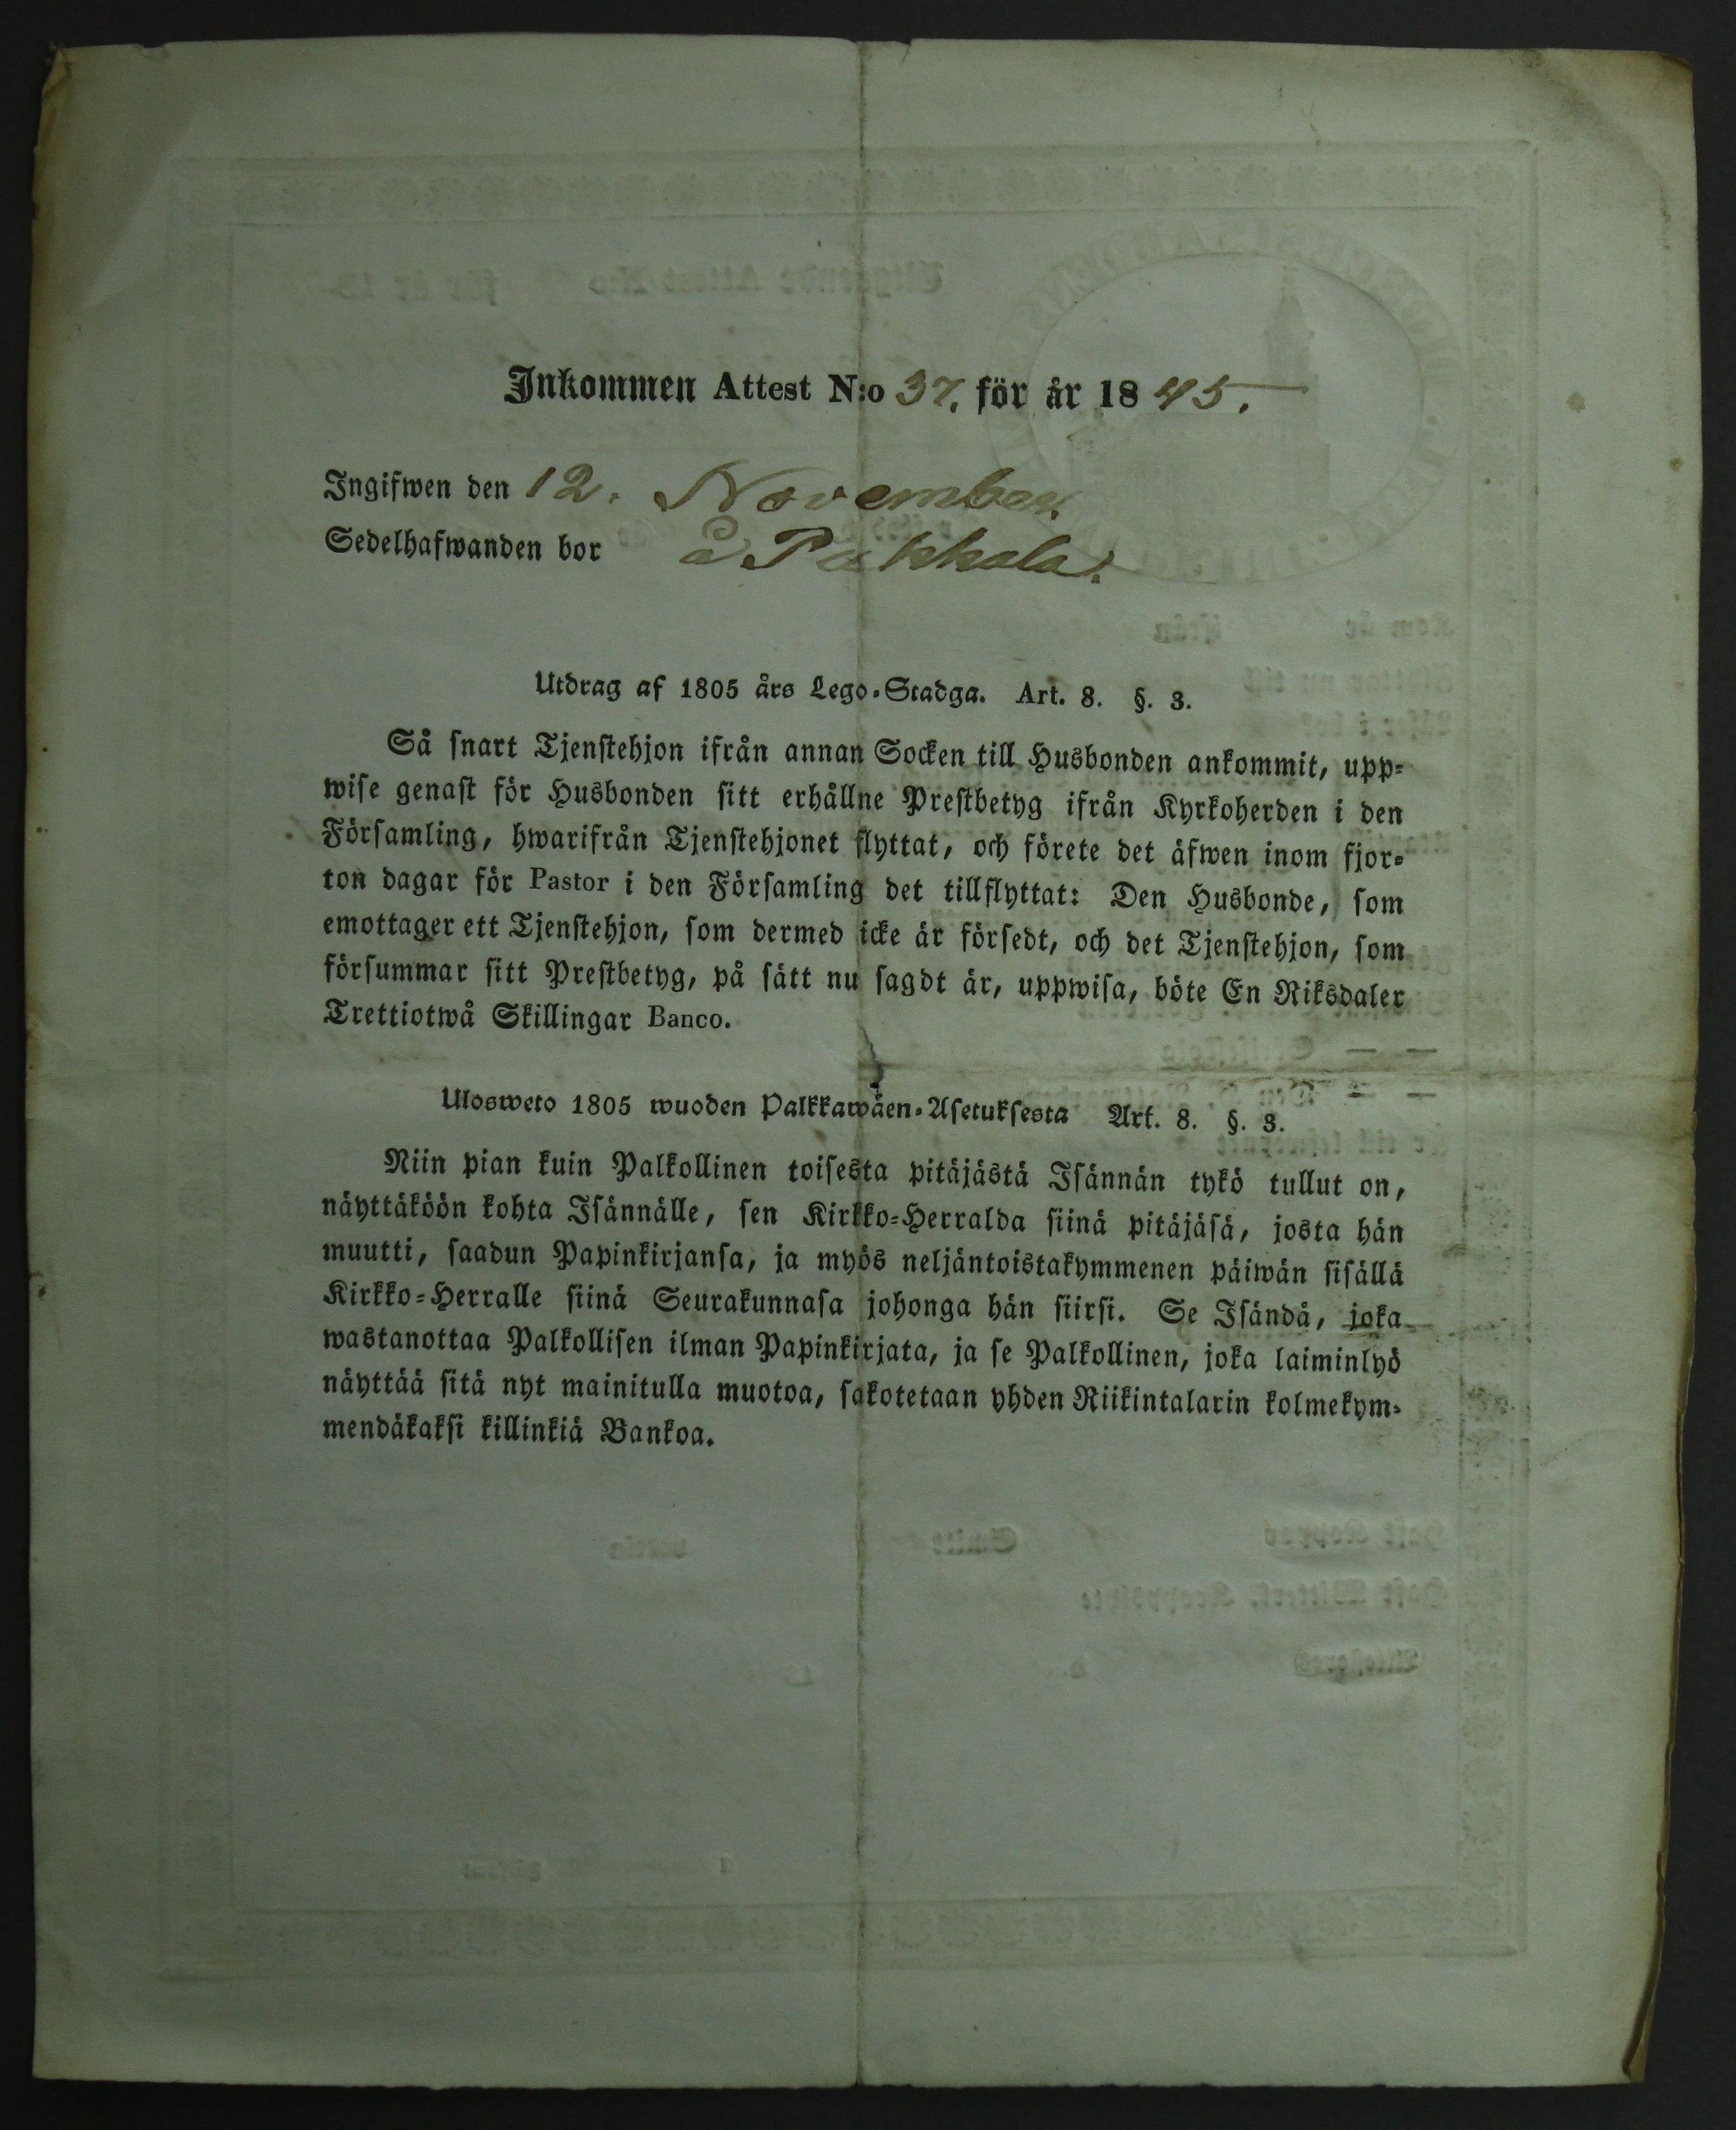 Inkommen Attest N:o 37. för år 1845.
Ingifwen den 12. November.
Sedelhafwanden bor å Pakkala.
Utdrag af 1805 års Lego-Stadga. Art. 8. §. 3.
Så snart Tjenstehjon ifrån annan Socken till Husbonden ankommit, upp-
wise genast för Husbonden sitt erhållne Prestbetyg ifrån Kyrkoherden i den
Församling, hwarifrån Tjenstehjonet flyttat, och förete det äfwen inom fjor-
ton dagar för Pastor i den Församling det tillflyttat: Den Husbonde, som
emottager ett Tjenstehjon, som dermed icke är försedt, och det Tjenstehjon, som
försummar sitt Prestbetyg, på sätt nu sagdt är, uppwisa, böte En Riksdaler
Trettiotwå Skillingar Banco.
Ulosweto 1805 wuoden Palkkawäen-Asetuksesta Art. 8. §. 3.
Niin pian kuin Palkollinen toisesta pitäjästä Isännän tykö tullut on,
näyttäköön kohta Isännälle, sen Kirkko-Herralda siinä pitäjäsä, josta hän
muutti, saadun Papinkirjansa, ja myös neljäntoistakymmenen päiwän sisällä
Kirkko-Herralle siinä Seurakunnasa johonga hän siirsi. Se Isändä, joka
wastanottaa Palkollisen ilman Papinkirjata, ja se Palkollinen, joka laiminlyö
näyttää sitä nyt mainitulla muotoa, sakotetaan yhden Riikintalarin kolmekym-
mendäkaksi killinkiä Bankoa.